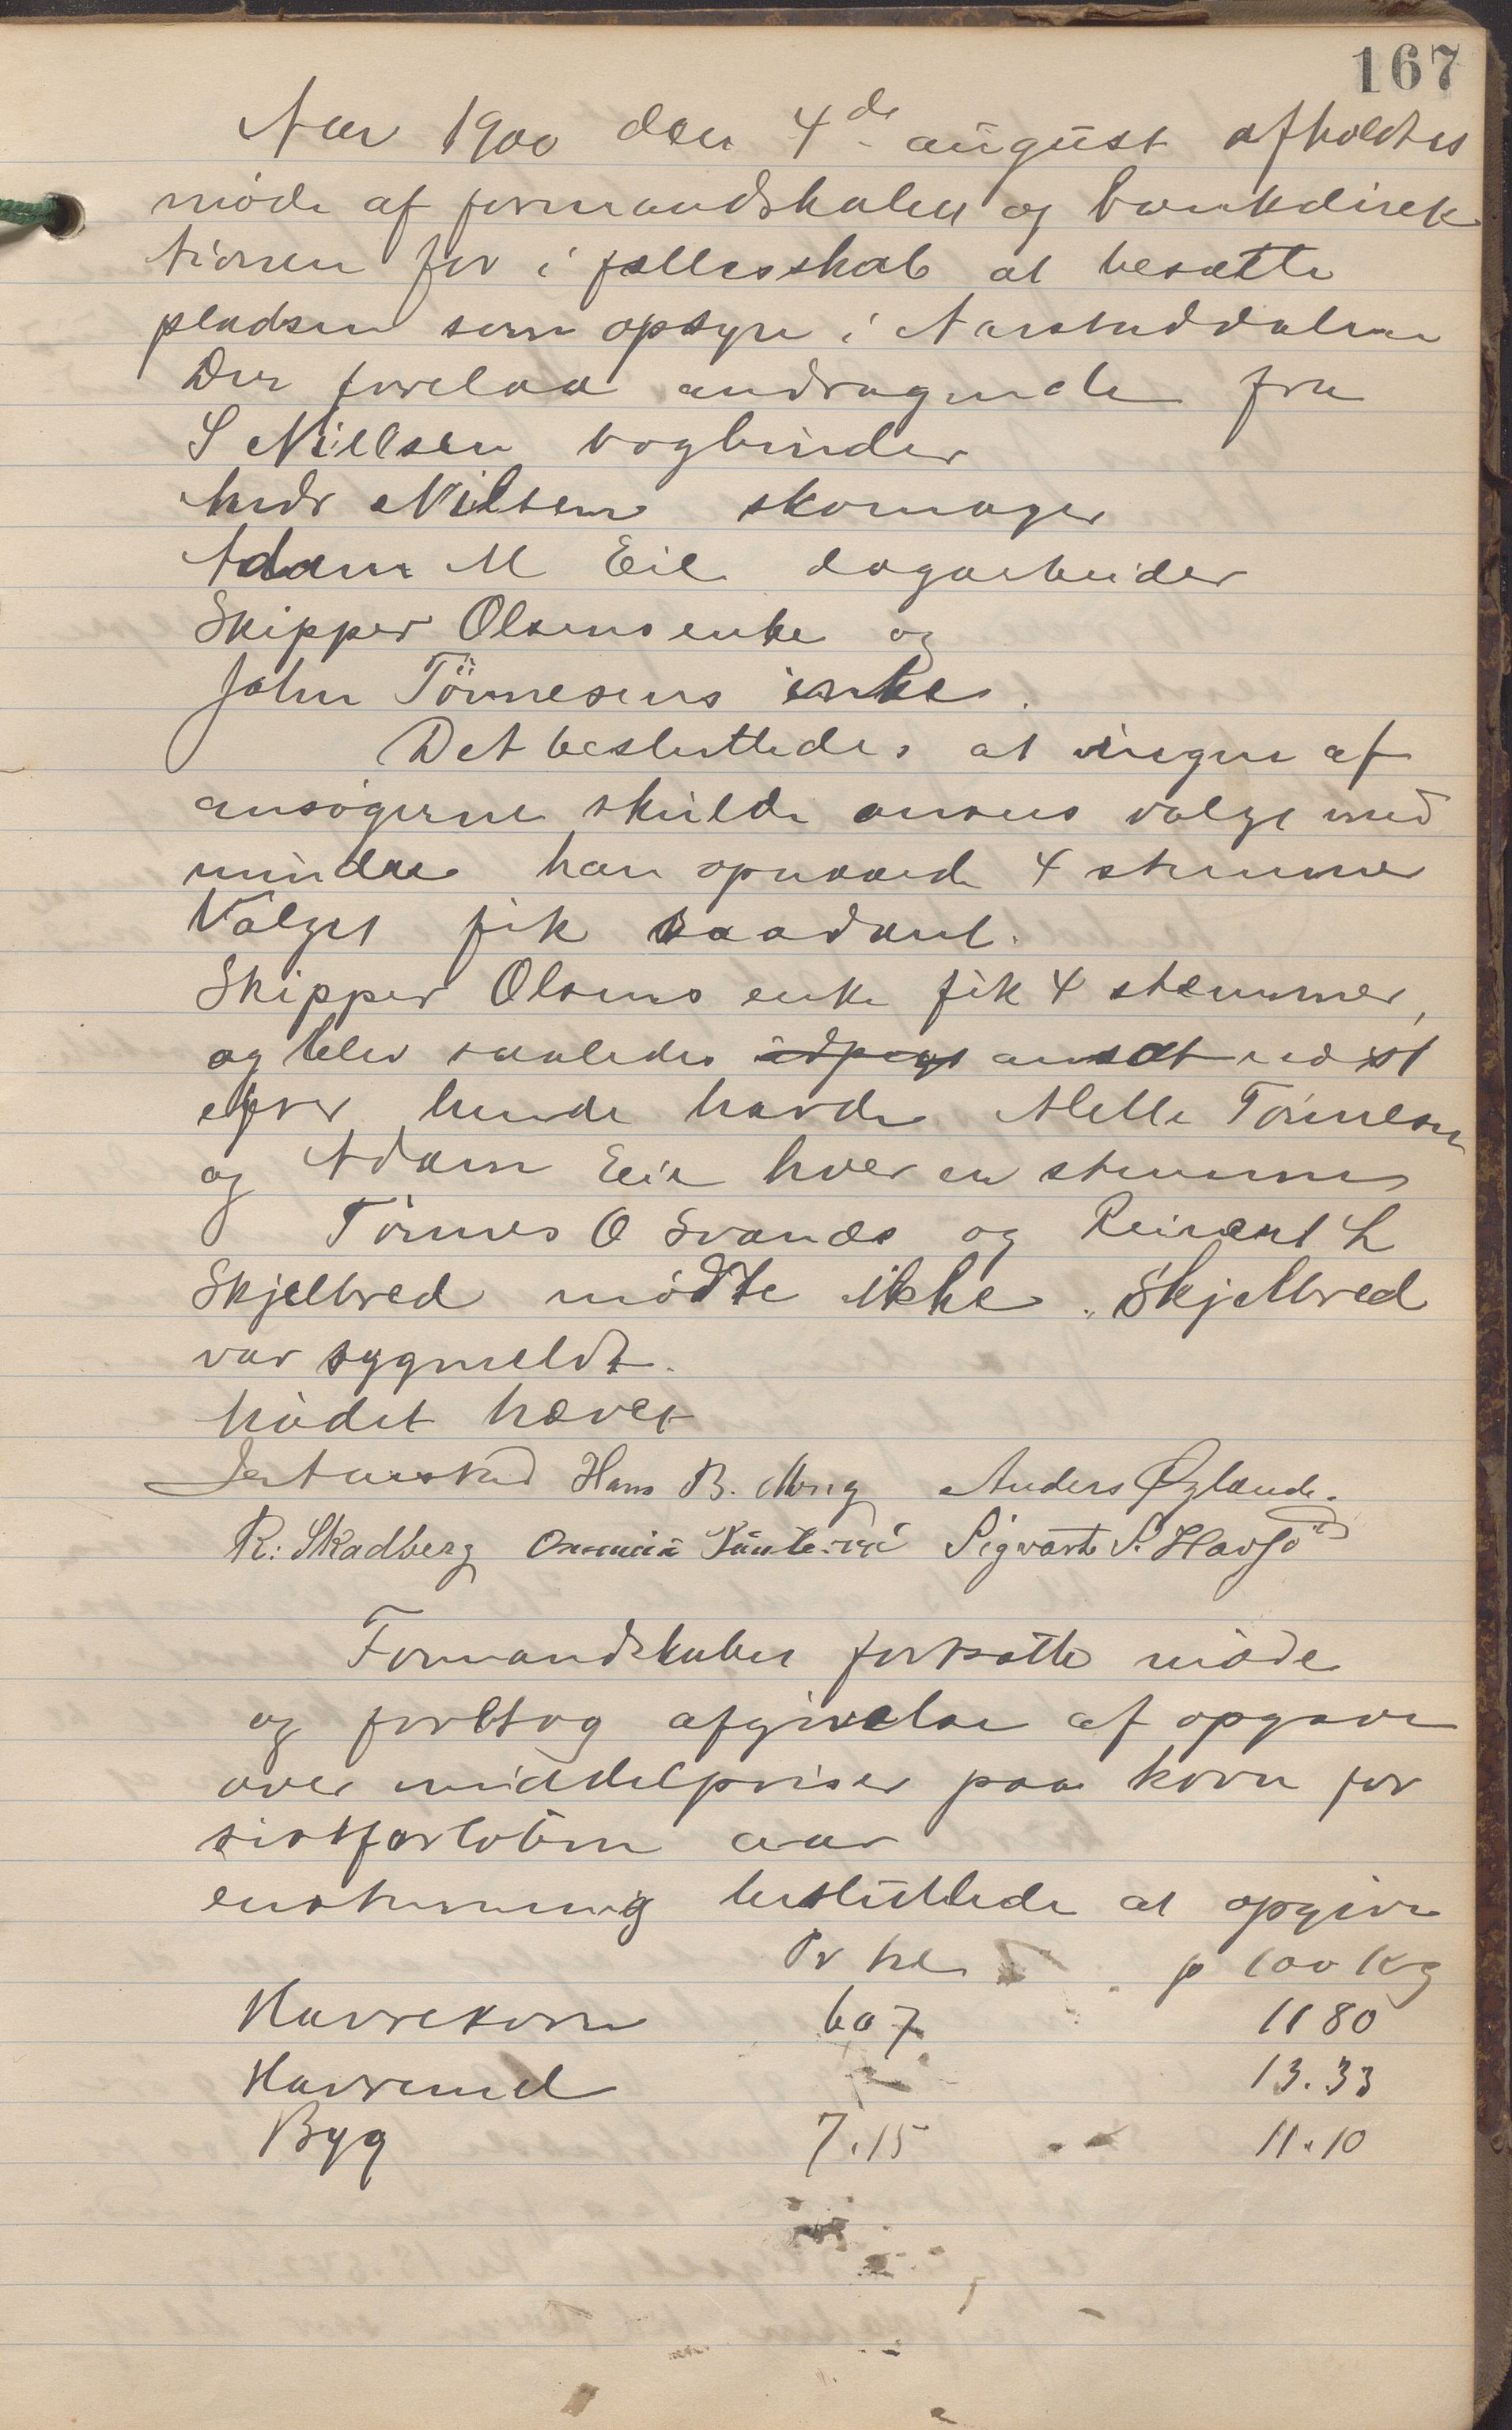 167
Aar 1900 den 4de august afholdtes
møde af formandskabet og bankdirek
tionen for i fællesskab at besætte
pladsen som opsyn i Aarstaddalen
Der forelaa andragende fra
S Nielsen bogbinder
Andr Nilsen skomager
Adam M Eie dagarbeider
Skipper Olsens enke og
John Tönnesens enke.
Det besluttedes at ingen af
ansøgerne skulde ansees valgt med
mindre han opnaaede 4 stemmer
Valget fik saadant.
Skipper Olsens enke fik 4 stemmer,
og blev saaledes ansat næst
efter hende havde Mette Tönnesen
og Adam Eie hver en stemme
Tönnes O Svanes og Reinert L
Skjelbred mødte ikke. Skjelbred
var sygmeldt.
Mødet hævet
Hans B. Mong Anders Øglænd.
R: Skadberg Sigvart S. Havsø
Formandskabet fortsatte møde
og foretog afgivelse af opgave
over middelpriser paa korn for
sistforløbne aar
enstemmig besluttede at opgive
Pr hl p 100 Kg
Havrekorn 607 1180
Havremel - 13.33
Byg 7.15 11.10